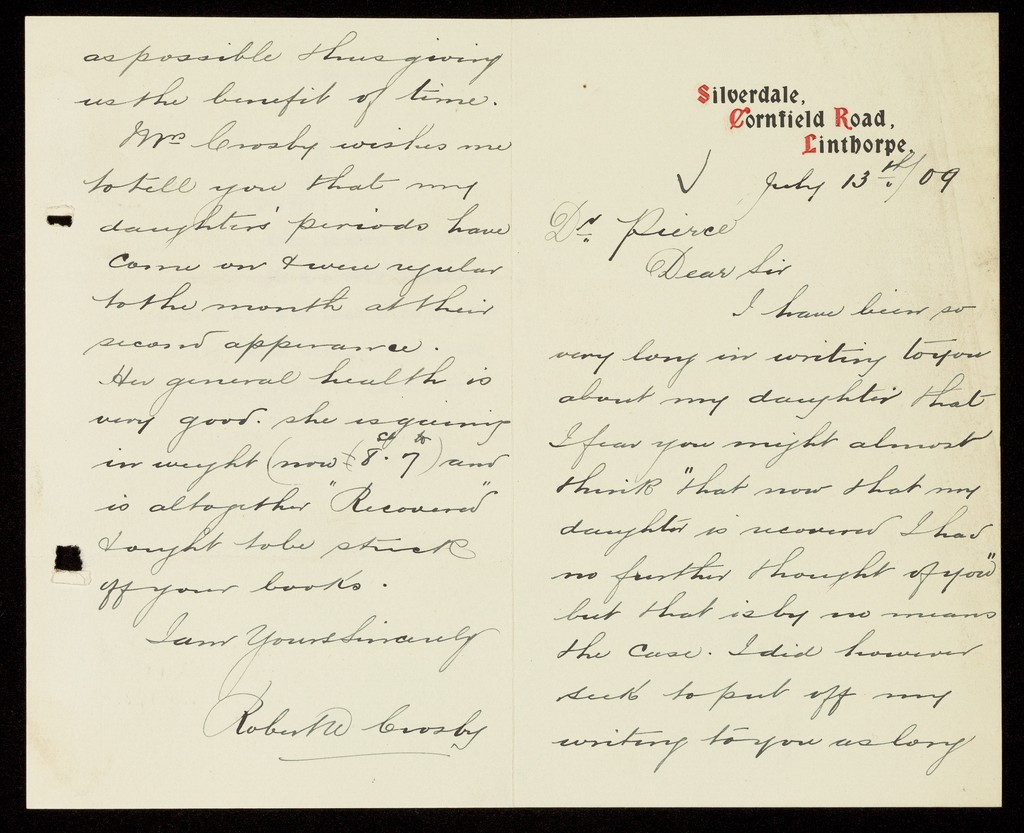 Silverdale,
Cornfield Road,
Linthorpe.
July 13th/09
Dr Pierce
Dear Sir
I have been so
very long in writing to you
about my daughter that
I fear you might almost
think "that now that my
daughter is recovered I had
no further thought of you"
but that is by no means
the case. I did however
seek to put off my
writing to you as long
as possible thus giving
us the benefit of time.
Mrs Crosby wishes me
to tell you that my
daughter's periods have
come on & were regular
to the month at their
second apperance.
Her general health is
very good. she is gaining
in weight (now 8st. 7lb) and
is altogether "Recovered"
& ought to be struck
off your books.
I am Yours Sincerely
Robert Crosby